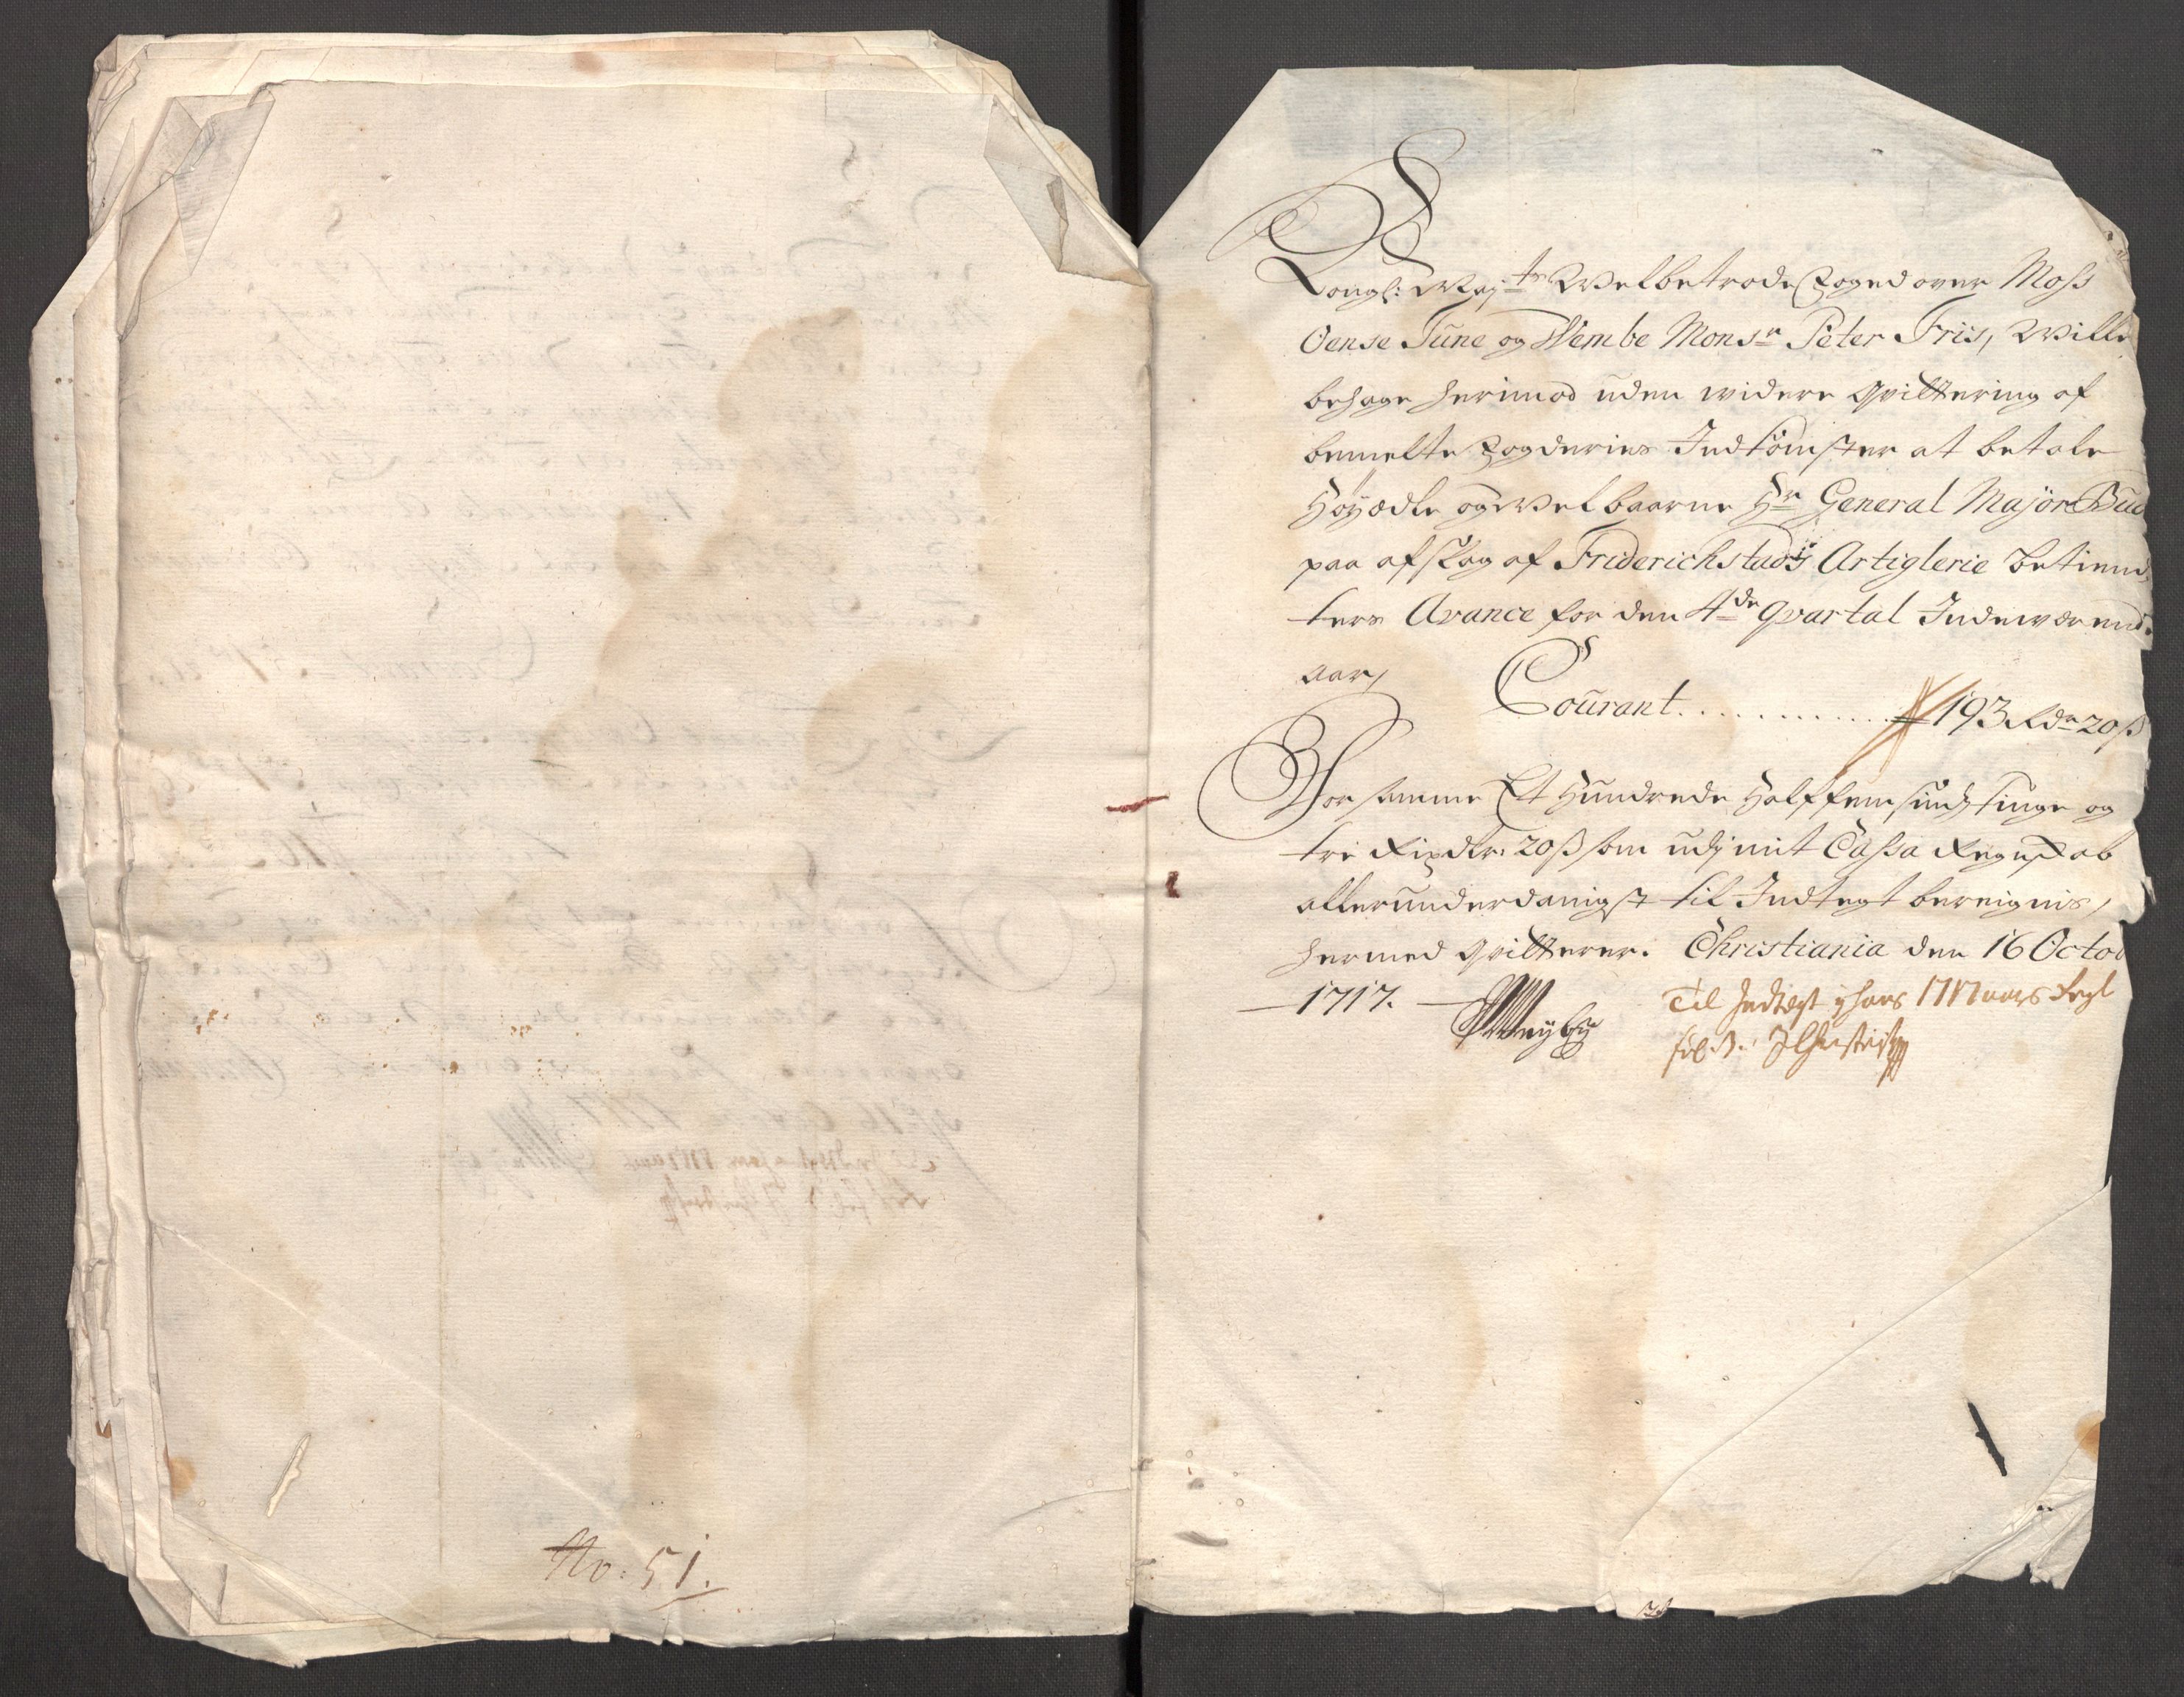 No: 51.
Kongl: Maj.ts Welbetrode Foged over Moss
Oense Tune og Wembe Monsr Peter Friis, Wille
behage herimod uden widere Qvittering af
bemelte Fogderies Indkomster at betale
Höyædle og Welbaarne Hr General Major Bud
paa afslag af Friderichstads Artiglerie betiend,
ters Avance for den 4de Qvartal Indeværende
aar,
Courant ............ 193 Rdr 20ß
For samme Et Hundrede Halffemsindstiuge og
tre Rixdlr: 20ß som udj mit Cassa Regnskab
allerunderdanigst til Indtegt bereignis,
hermed qvitterer. Christiania den 16 Octob
1717.
Til Indtægt i hans 1717 aars
fol: 3.